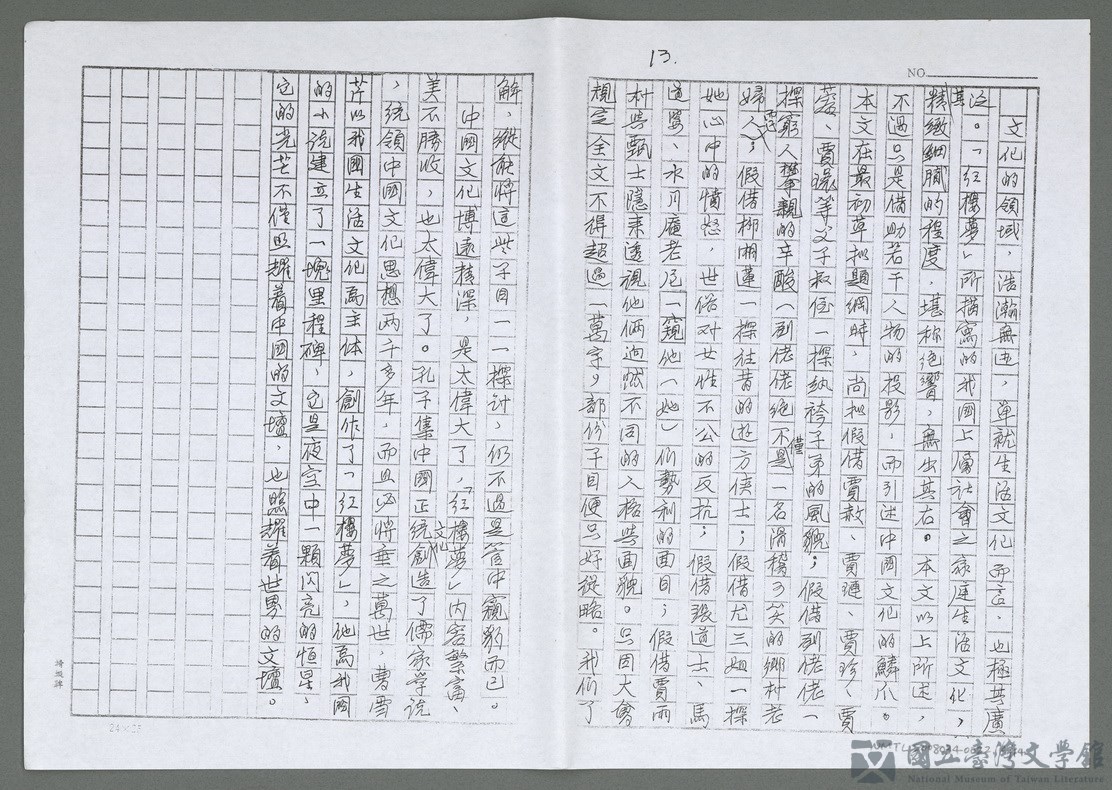 13.
NO.
文化的領域，浩瀚無边，單就生活文化而言，也極其廣
泛。「紅樓夢」所描寫的我國上層社會之家庭生活文化，其
精緻細膩的程度，堪称絕響，無出其右。本文以上所述，
不過只是借助若干人物的投影，而引述中國文化的鱗爪。
本文在最初草拟題綱時，尚拟假借賈赦、賈璉、賈珍、賈
蓉、賈環等父子叔侄一探紈袴子弟的風貌；假借劉佬佬一
探窮人攀親的辛酸（劉佬佬絕不僅是一名滑稽可笑的鄉村老
婦人而已）；假借柳湘蓮一探往昔的遊方俠士；假借尤三姐一探
她心中的憤怒，世俗对女性不公的反抗；假借張道士、馬
道婆、水月庵老尼一窺他（她）们勢利的面目；假借賈雨
村与甄士隱来透視他倆迥然不同的人格与面貌。只因大會
規定全文不得超過一萬字，部份子目便只好從略。我们了
解，縱能將這些子目一一探讨，仍不過是管中窺豹而已。
中國文化博遠精深，是太偉大了，「紅樓夢」内容繁富、
美不勝收，也太偉大了。孔子集中國正統文化創造了儒家学说
，統領中國文化思想两千多年，而且必將垂之萬世，曹雪
芹以我國生活文化為主体，創作了「紅樓夢」，他為我國
的小说建立了一塊里程碑，它是夜空中一顆闪亮的恒星，
它的光芒不僅照耀着中國的文壇，也照耀着世界的文壇。
24×25
國立臺灣文學館
National Museum of Taiwan Literature